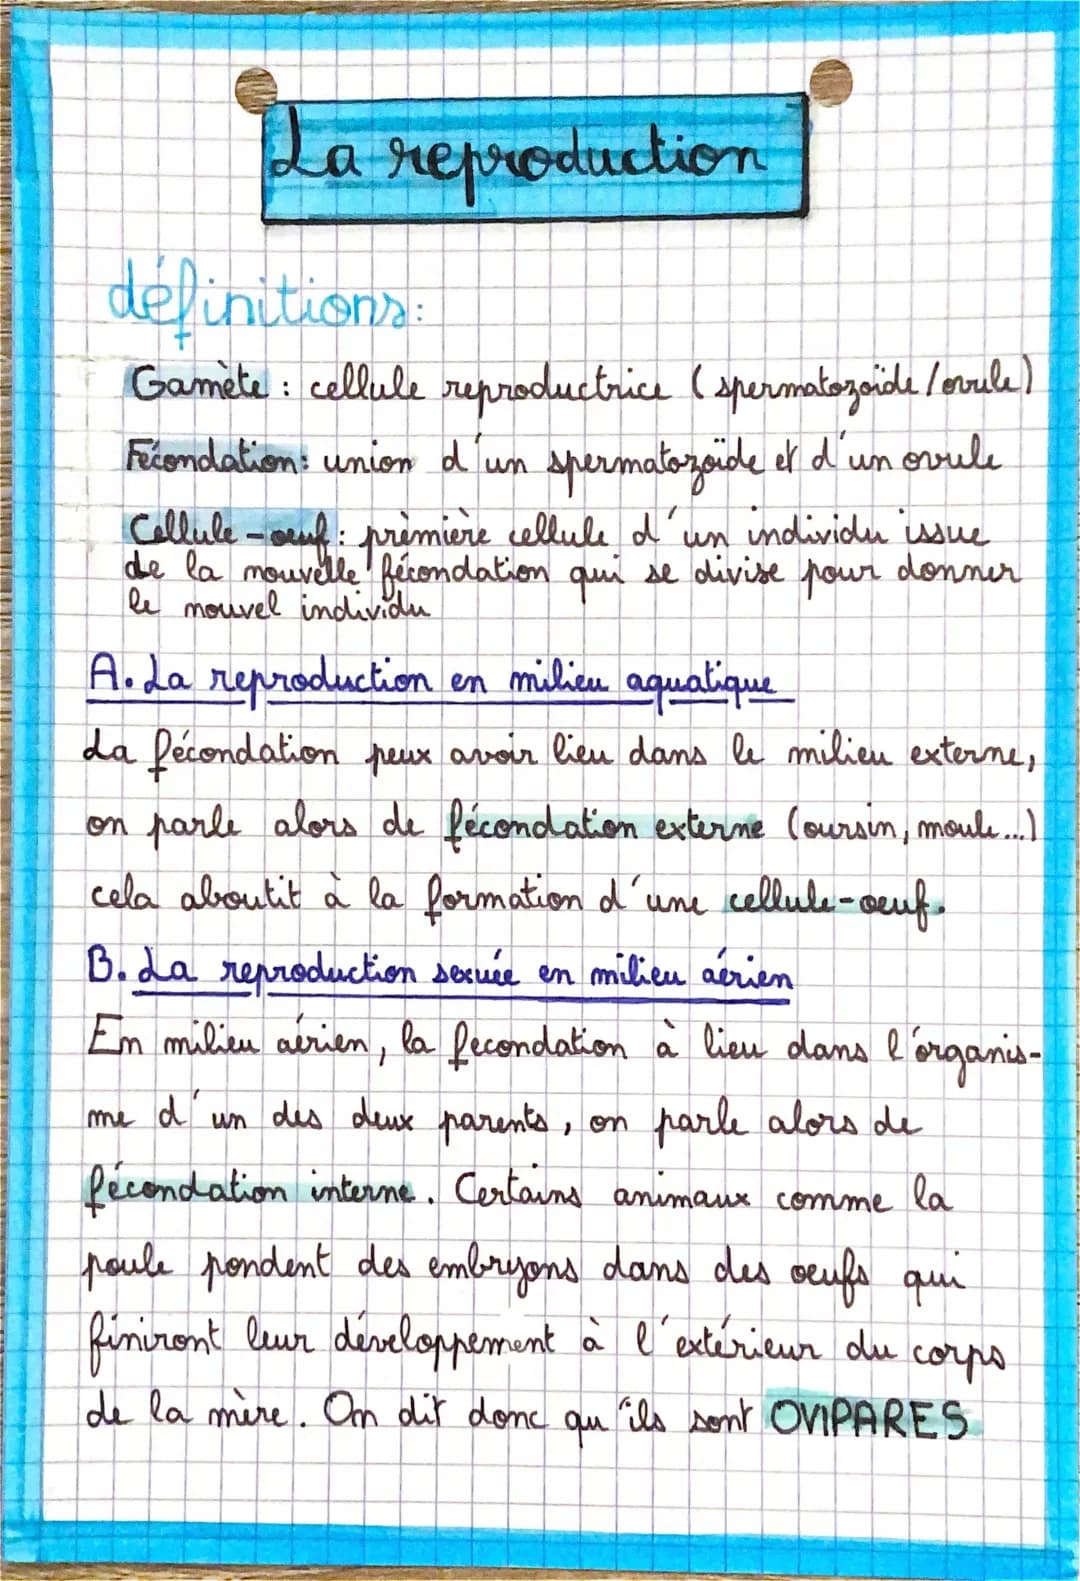 La reproduction
définitions:
Gamète : cellule reproductrice (spermatozoïde/ovule)
Fécondation: union d'un spermatozoïde et d'un ovule
Cellule-oeuf: prèmière cellule d'un individu issue
de la nouvelle fécondation qui se divise pour donner
le nouvel individu
A. La reproduction en milieu aquatique
La fécondation peux avoir lieu dans le milieu externe,
on parle alors de fécondation externe (oursin, moule...)
cela aboutit à la formation d'une cellule-oeuf.
B. La reproduction sexuée en milieu aérien
En milieu aérien, la fecondation à lieu dans l'organis-
me d'un des deux parents, on parle alors de
fécondation interne. Certains animaux comme la
poule pondent des embryons dans des oeufs qui
finiront leur développement à l'extérieur du corps
de la mère. On dit donc qu'ils sont OVIPARES